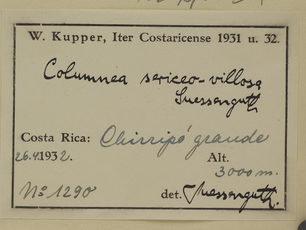 W. Kupper, Iter Costaricense 1931 u. 32.
Columnea sericeo-villosa
Suessenguth
Costa Rica: Chirripó grande
26.4.1932. Alt.
3000 m.
No 1290 det. Suessenguth.